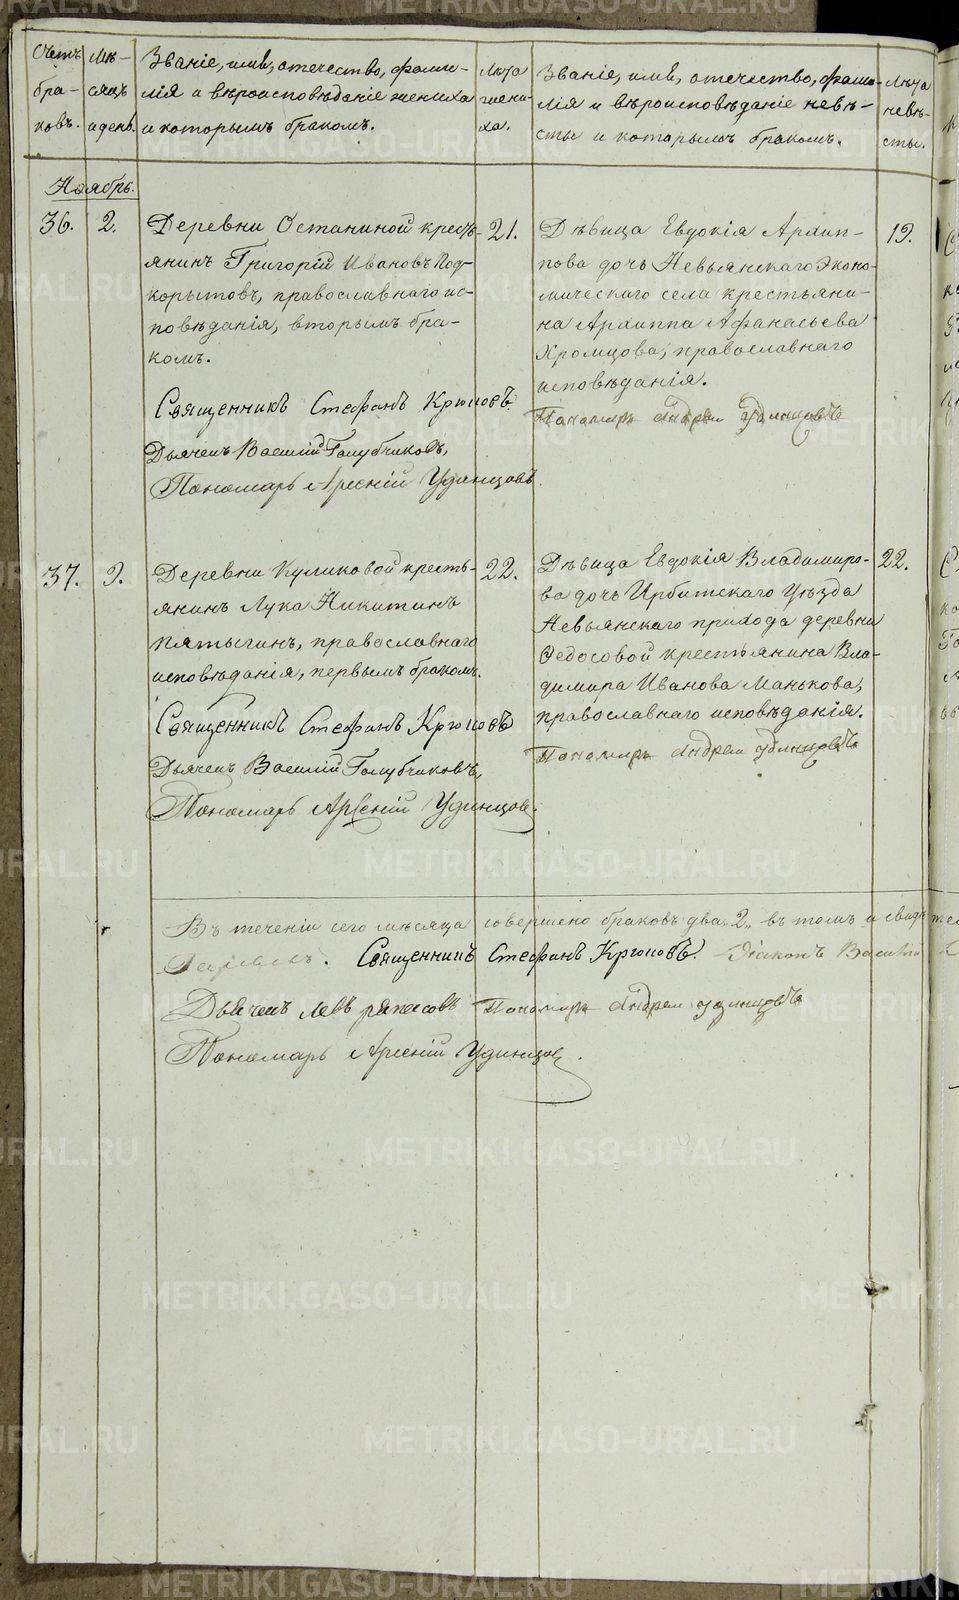 Счетъ бра- ковъ.
Мѣ- сяцъ и день.
Званіе, имя, отечество, фами-
лія и вѣроисповѣданіе жениха
и которымъ бракомъ.
Лѣта жени- ха.
Званіе, имя, отечество, фами-
лія и вѣроисповѣданіе невѣ-
сты и которымъ бракомъ.
Лѣта невѣ- сты.
Ноябрь.
36. 2.
Деревни Останиной кресть-
янинъ Григорій Ивановъ Под-
корытовъ, православнаго ис-
повѣданія, вторымъ бра-
комъ.
21.
Священникъ Стефанъ Крюковъ.
Дьячекъ Василій Голубчиковъ,
Пономарь Арсеній Удинцовъ.
Дѣвица Евдокія Архип-
пова дочь Невьянскаго Эконо-
мическаго села крестьяни-
на Архиппа Афанасьева
Хромцова, православнаго
исповѣданія.
19.
Пономарь Андрей Удинцовъ
37. 9.
Деревни Куликовой кресть-
янинъ Лука Никитинъ
Пятыгинъ, православнаго
исповѣданія, первымъ бракомъ.
22.
Священникъ Стефанъ Крюковъ
Дьячекъ Василій Голубчиковъ,
Пономарь Арсеній Удинцовъ.
Дѣвица Евдокія Владиміро-
ва дочь Ирбитскаго Уѣзда
Невьянскаго прихода деревни
Федосовой крестьянина Вла-
диміра Иванова Манькова,
православнаго исповѣданія.
22.
Пономарь Андрей Удинцовъ
Въ теченіи сего мѣсяца совершено браковъ два „2„ въ томъ и свидѣтел
Священникъ Стефанъ Крюковъ. Діаконъ Василій
Дьячекъ Левъ Пономарь Андрей Удинцовъ
Пономарь Арсеній Удинцовъ.
METRIKI.GASO-URAL.RU